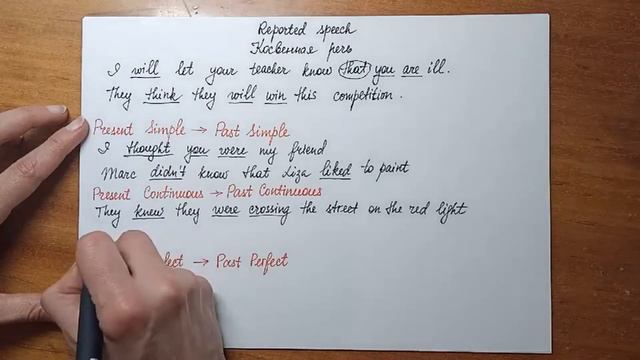 Reported speech
Косвенная речь
I will let your teacher know that you are ill.
They think they will win this competition.
Present Simple → Past Simple
I thought you were my friend
Marc didn't know that Liza liked to paint
Present Continuous → Past Continuous
They knew they were crossing the street on the red light
→ Past Perfect